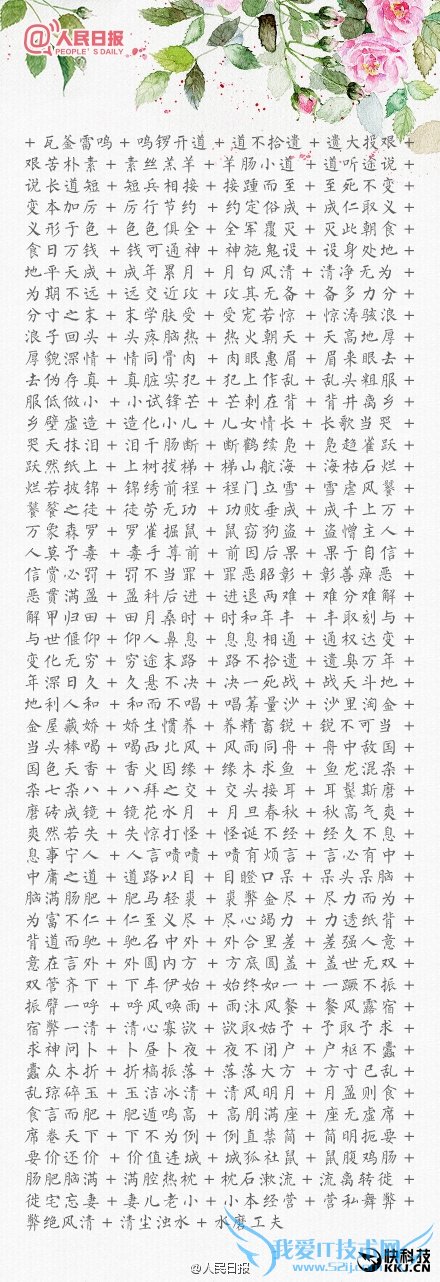 @人民日报
PEOPLE'S DAILY
+ 瓦釜雷鸣 + 鸣锣开道 + 道不拾遗 + 遗大投艰 +
艰苦朴素 + 素丝羔羊 + 羊肠小道 + 道听途说 +
说长道短 + 短兵相接 + 接踵而至 + 至死不变 +
变本加厉 + 厉行节约 + 约定俗成 + 成仁取义 +
义形于色 + 色色俱全 + 全军覆灭 + 灭此朝食 +
食日万钱 + 钱可通神 + 神施鬼设 + 设身处地 +
地平天成 + 成年累月 + 月白风清 + 清净无为 +
为期不远 + 远交近攻 + 攻其无备 + 备多力分 +
分寸之末 + 末学肤受 + 受宠若惊 + 惊涛骇浪 +
浪子回头 + 头疼脑热 + 热火朝天 + 天高地厚 +
厚貌深情 + 情同骨肉 + 肉眼惠眉 + 眉来眼去 +
去伪存真 + 真脏实犯 + 犯上作乱 + 乱头粗服 +
服低做小 + 小试锋芒 + 芒刺在背 + 背井离乡 +
乡壁虚造 + 造化小儿 + 儿女情长 + 长歌当哭 +
哭天抹泪 + 泪干肠断 + 断鹤续凫 + 凫趋雀跃 +
跃然纸上 + 上树拔梯 + 梯山航海 + 海枯石烂 +
烂若披锦 + 锦绣前程 + 程门立雪 + 雪虐风饕 +
饕餮之徒 + 徒劳无功 + 功败垂成 + 成千上万 +
万象森罗 + 罗雀掘鼠 + 鼠窃狗盗 + 盗憎主人 +
人莫予毒 + 毒手尊前 + 前因后果 + 果于自信 +
信赏必罚 + 罚不当罪 + 罪恶昭彰 + 彰善瘅恶 +
恶贯满盈 + 盈科后进 + 进退两难 + 难分难解 +
解甲归田 + 田月桑时 + 时和年丰 + 丰取刻与 +
与世偃仰 + 仰人鼻息 + 息息相通 + 通权达变 +
变化无穷 + 穷途末路 + 路不拾遗 + 遗臭万年 +
年深日久 + 久悬不决 + 决一死战 + 战天斗地 +
地利人和 + 和而不唱 + 唱筹量沙 + 沙里淘金 +
金屋藏娇 + 娇生惯养 + 养精蓄锐 + 锐不可当 +
当头棒喝 + 喝西北风 + 风雨同舟 + 舟中敌国 +
国色天香 + 香火因缘 + 缘木求鱼 + 鱼龙混杂 +
杂七杂八 + 八拜之交 + 交头接耳 + 耳鬓斯磨 +
磨砖成镜 + 镜花水月 + 月旦春秋 + 秋高气爽 +
爽然若失 + 失惊打怪 + 怪诞不经 + 经久不息 +
息事宁人 + 人言啧啧 + 啧有烦言 + 言必有中 +
中庸之道 + 道路以目 + 目瞪口呆 + 呆头呆脑 +
脑满肠肥 + 肥马轻裘 + 裘弊金尽 + 尽力而为 +
为富不仁 + 仁至义尽 + 尽心竭力 + 力透纸背 +
背道而驰 + 驰名中外 + 外合里差 + 差强人意 +
意在言外 + 外圆内方 + 方底圆盖 + 盖世无双 +
双管齐下 + 下车伊始 + 始终如一 + 一蹶不振 +
振臂一呼 + 呼风唤雨 + 雨沐风餐 + 餐风露宿 +
宿弊一清 + 清心寡欲 + 欲取姑予 + 予取予求 +
求神问卜 + 卜昼卜夜 + 夜不闭户 + 户枢不蠹 +
蠹众木折 + 折槁振落 + 落落大方 + 方寸已乱 +
乱琼碎玉 + 玉洁冰清 + 清风明月 + 月盈则食 +
食言而肥 + 肥遁鸣高 + 高朋满座 + 座无虚席 +
席卷天下 + 下不为例 + 例直禁简 + 简明扼要 +
要价还价 + 价值连城 + 城狐社鼠 + 鼠腹鸡肠 +
肠肥脑满 + 满腔热枕 + 枕石漱流 + 流离转徙 +
徙宅忘妻 + 妻儿老小 + 小本经营 + 营私舞弊 +
弊绝风清 + 清尘浊水 + 水磨工夫
@人民日报
我爱IT技术网
快科技
KKJ.CN